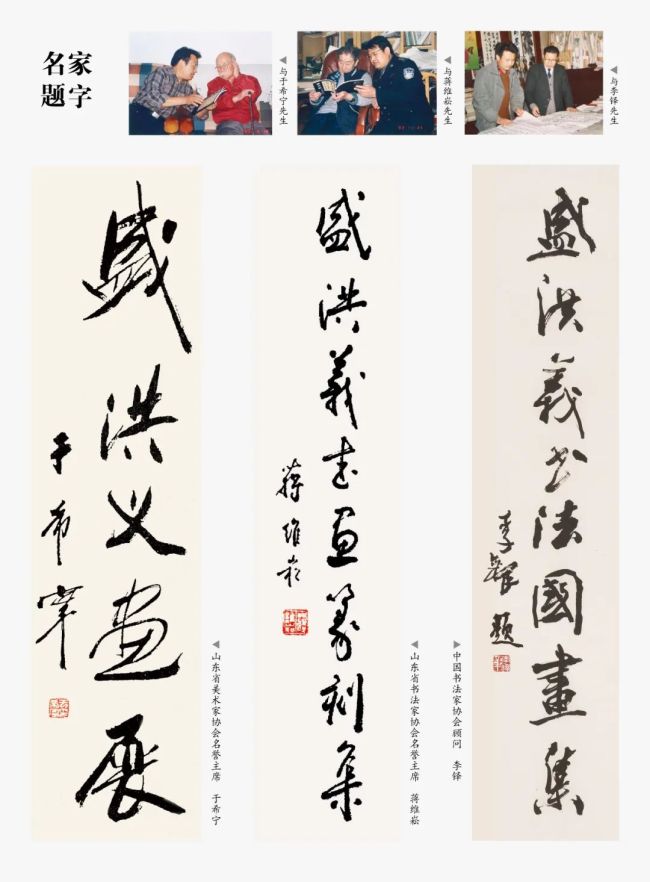 名家
题字
与于希宁先生
与蒋维崧先生
与李铎先生
盛洪义画展
于希宁
山东省美术家协会名誉主席 于希宁
盛洪義书画篆刻集
蒋维崧
山东省书法家协会名誉主席 蒋维崧
中国书法家协会顾问 李铎
盛洪義书法國畫集
李鐸題